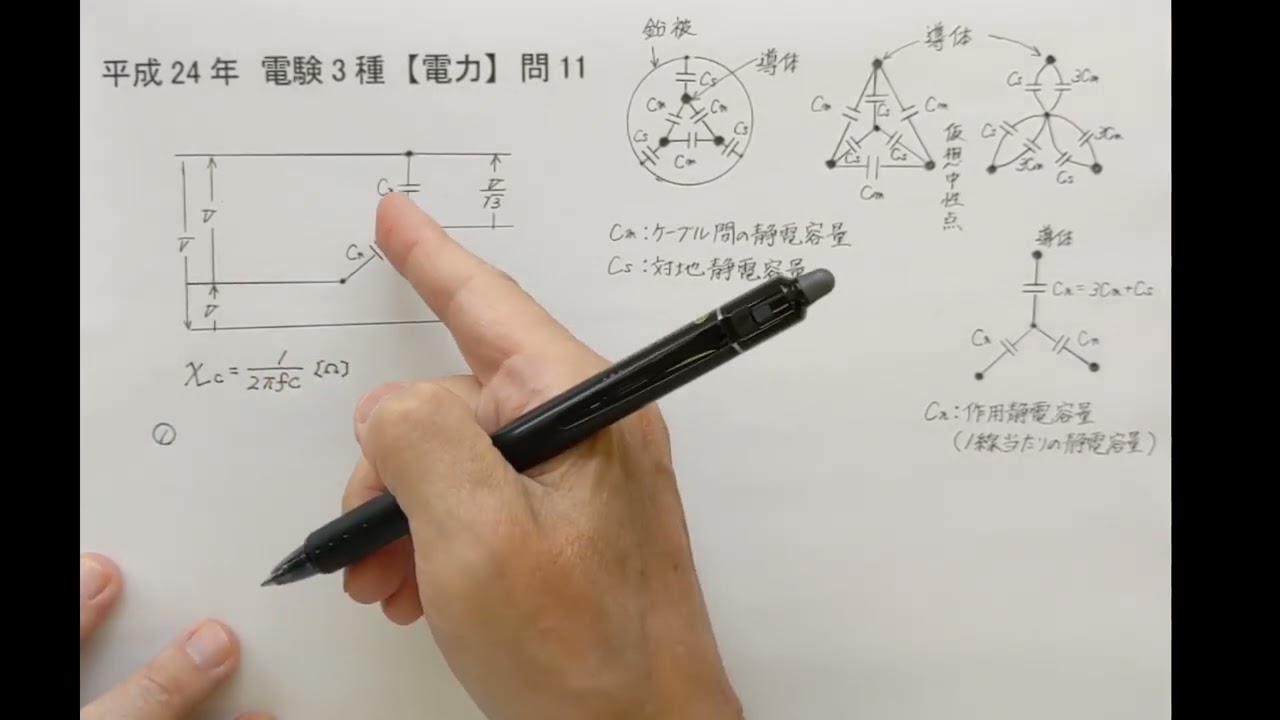 平成24年 電験3種【電力】問11
鉛被
導体
Cs
Cm
Cm
Cs
Cs
Cm
導体
Cm
Cs
Cm
Cs
Cs
Cm
仮想中性点
Cs
3Cm
Cs
3Cm
3Cm
Cs
V
V
V
V/√3
Cn
Cm:ケーブル間の静電容量
Cs:対地静電容量
導体
Cn=3Cm+Cs
Cn
Cn
Cn:作用静電容量
(1線当たりの静電容量)
Xc=1/2πfC [Ω]
①